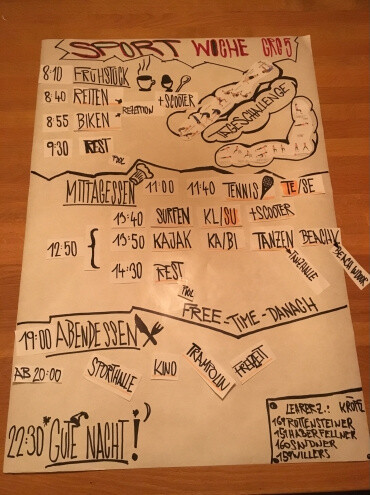 SPORT WOCHE GRÖ5
8:10 FRÜHSTÜCK
8:40 REITEN
REZEPTION
+SCOOTER
8:55 BIKEN
9:30 REST
TAGESCHALLENGE
MITTAGESSEN 11:00 11:40 TENNIS TE/SE
13:40 SURFEN KL/SU +SCOOTER
12:50 { 13:50 KAJAK KA/BI TANZEN BEACHV.
14:30 REST
FREE-TIME-DANACH
19:00 ABENDESSEN
AB 20:00 SPORTHALLE KINO TRAMPOLIN FREIZEIT
22:30 "GUTE NACHT!"
LEHRERZ.: KRÖTZ
169 ROTTENSTEINER
151 HABERFELLNER
160 SANDNER
159 WILLERS